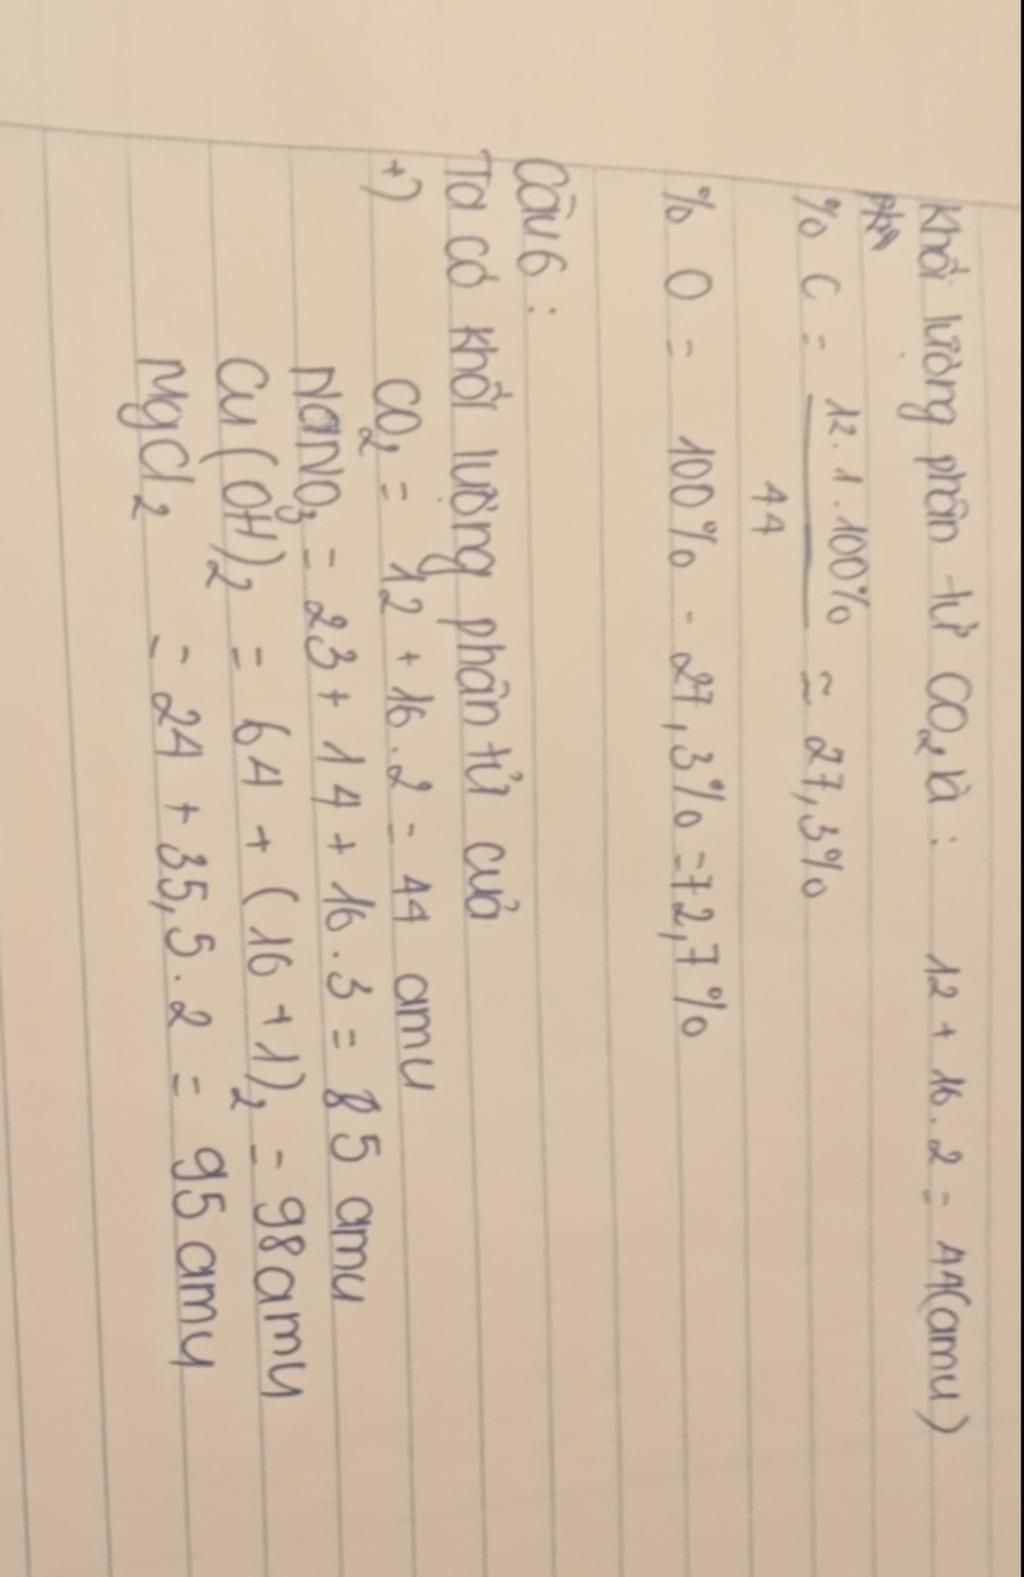 Khối lượng phân tử CO2 là : 12 + 16.2 = 44(amu)
% C = 12.1.100% / 44 ≈ 27,3%
% O = 100% - 27,3% = 72,7%
Câu 6 :
Ta có khối lượng phân tử của
+) CO2 = 12 + 16.2 = 44 amu
NaNO3 = 23 + 14 + 16.3 = 85 amu
Cu(OH)2 = 64 + (16 + 1)2 = 98 amu
MgCl2 = 24 + 35,5.2 = 95 amu